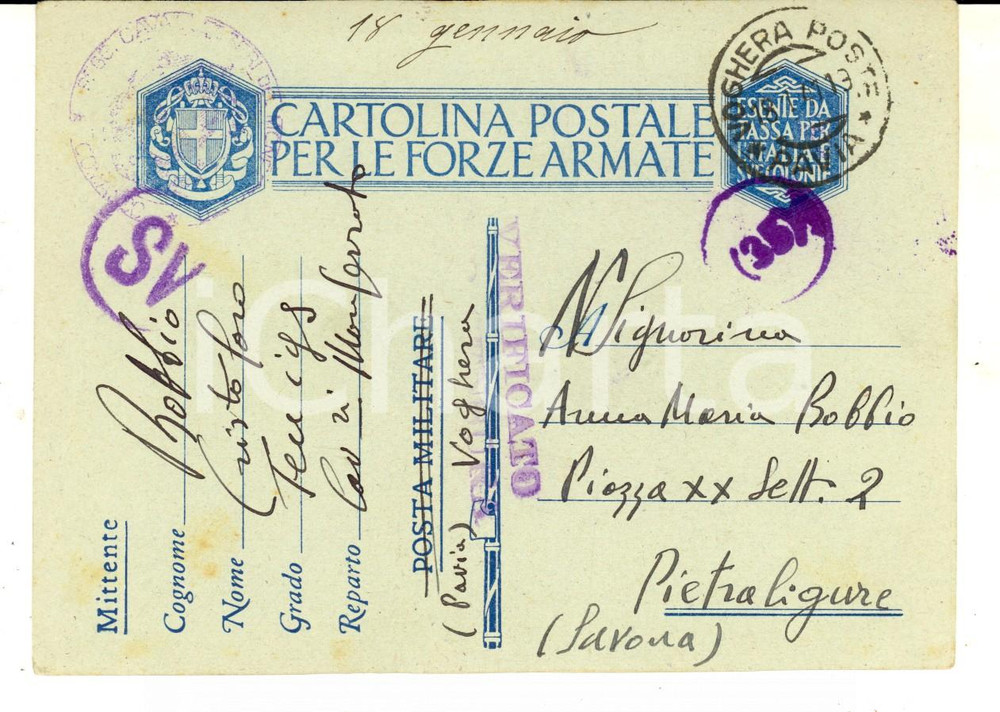 18 gennaio
CARTOLINA POSTALE
PER LE FORZE ARMATE
ESENTE DA
TASSA PER
VOGHERA POSTE
* PAVIA *
AS
VERIFICATO
Mittente
Cognome Bobbio
Nome Cristoforo
Grado Ten
Reparto Cav di Monferrato
POSTA MILITARE
Voghera
(Pavia)
Signorina
Anna Maria Bobbio
Piazza XX Sett. 2
Pietraligure
(Savona)
iCharta